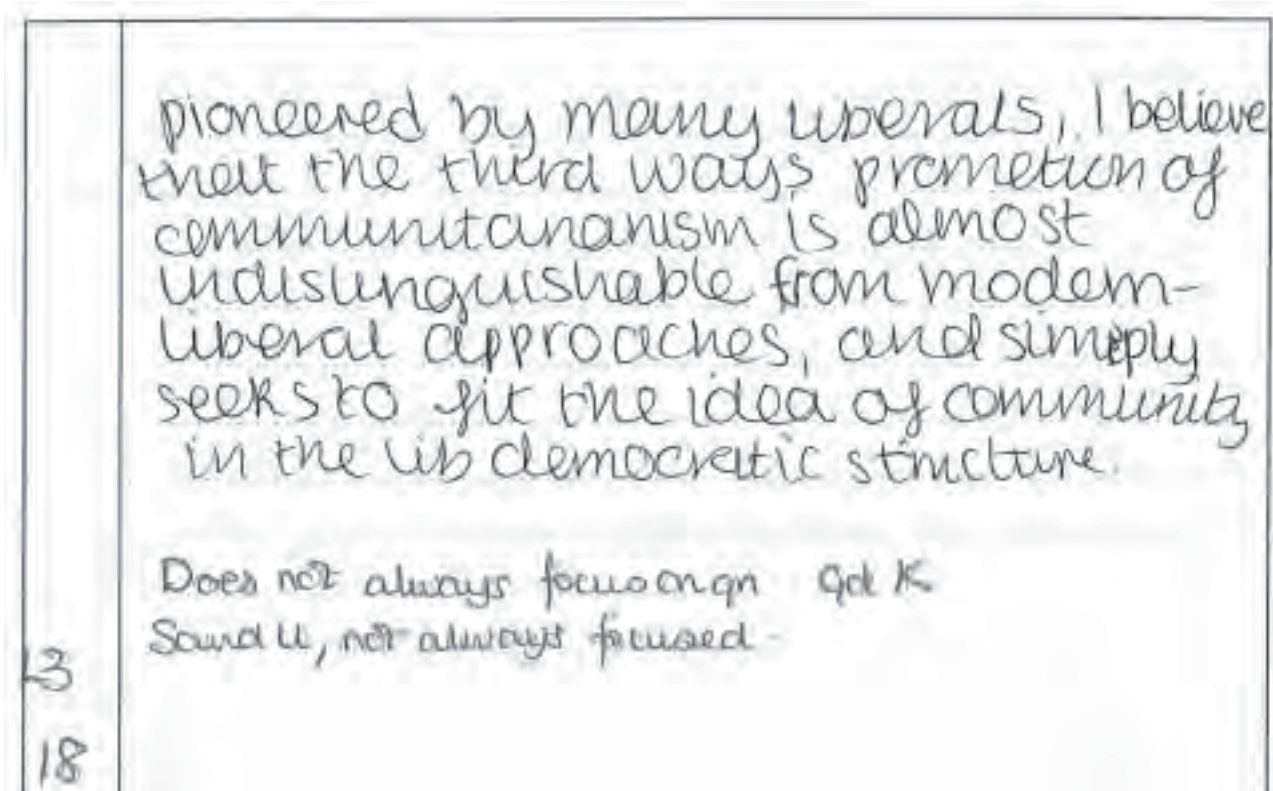 pioneered by many liberals, I believe
that the third ways promotion of
communitarianism is almost
indistinguishable from modern-
liberal approaches, and simply
seeks to fit the idea of community
in the lib democratic structure.
Does not always focus on qn Gd K
Sound U, not always focused -
L3
18